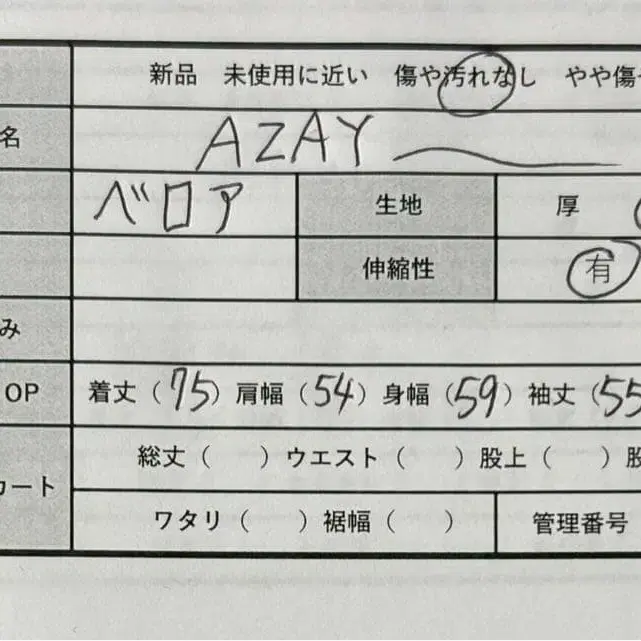 新品 未使用に近い 傷や汚れなし やや傷
名 AZAY
ベロア 生地 厚
伸縮性 有
み
OP 着丈（75）肩幅（54）身幅（59）袖丈（55
カート 総丈（ ）ウエスト（ ）股上（ ）股
ワタリ（ ）裾幅（ ） 管理番号